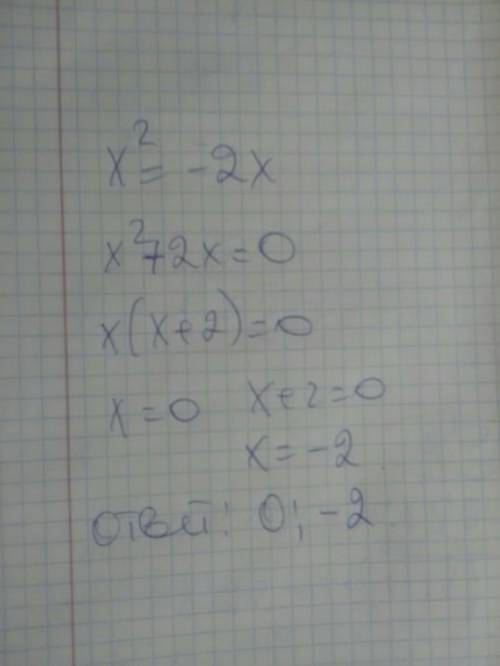 x² = -2x
x²+2x=0
x(x+2)=0
x=0 x+2=0
x=-2
ответ: 0; -2